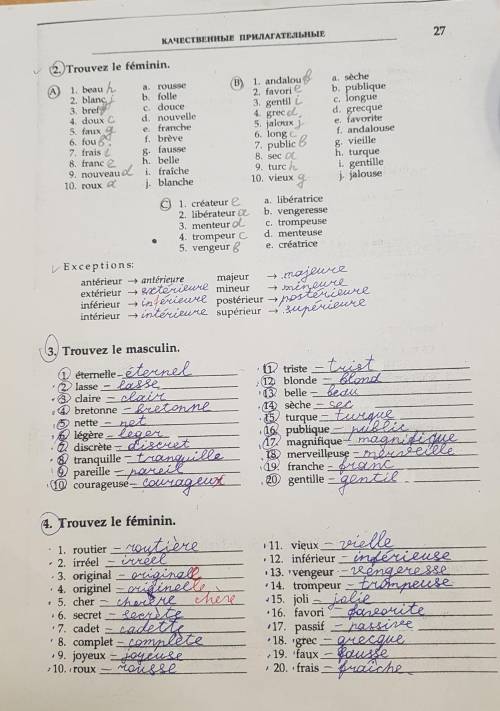 КАЧЕСТВЕННЫЕ ПРИЛАГАТЕЛЬНЫЕ 27
2. Trouvez le féminin.
A 1. beau h a. rousse
2. blanc j b. folle
3. bref f c. douce
4. doux c d. nouvelle
5. faux g e. franche
6. fou b f. brève
7. frais i g. fausse
8. franc e h. belle
9. nouveau d i. fraîche
10. roux a j. blanche
B 1. andalou f a. sèche
2. favori e b. publique
3. gentil i c. longue
4. grec d d. grecque
5. jaloux j e. favorite
6. long c f. andalouse
7. public b g. vieille
8. sec a h. turque
9. turc h i. gentille
10. vieux g j. jalouse
C 1. créateur e a. libératrice
2. libérateur a b. vengeresse
3. menteur d c. trompeuse
4. trompeur c d. menteuse
5. vengeur b e. créatrice
Exceptions:
antérieur → antérieure majeur → majeure
extérieur → extérieure mineur → mineure
inférieur → inférieure postérieur → postérieure
intérieur → intérieure supérieur → supérieure
3. Trouvez le masculin.
1. éternelle – éternel
2. lasse – lasse
3. claire – clair
4. bretonne – bretonne
5. nette – net
6. légère – leger
7. discrète – discret
8. tranquille – tranquille
9. pareille – pareil
10. courageuse – courageux
11. triste – trist
12. blonde – blond
13. belle – beau
14. sèche – sec
15. turque – turque
16. publique – public
17. magnifique – magnifique
18. merveilleuse – merveille
19. franche – franc
20. gentille – gentil
4. Trouvez le féminin.
1. routier – routière
2. irréel – irréel
3. original – originale
4. originel – originelle
5. cher – chère
6. secret – secrète
7. cadet – cadette
8. complet – complète
9. joyeux – joyeuse
10. roux – rousse
11. vieux – vielle
12. inférieur – inférieuse
13. vengeur – vengeresse
14. trompeur – trompeuse
15. joli – jolie
16. favori – favorite
17. passif – passive
18. grec – grecque
19. faux – fausse
20. frais – fraîche